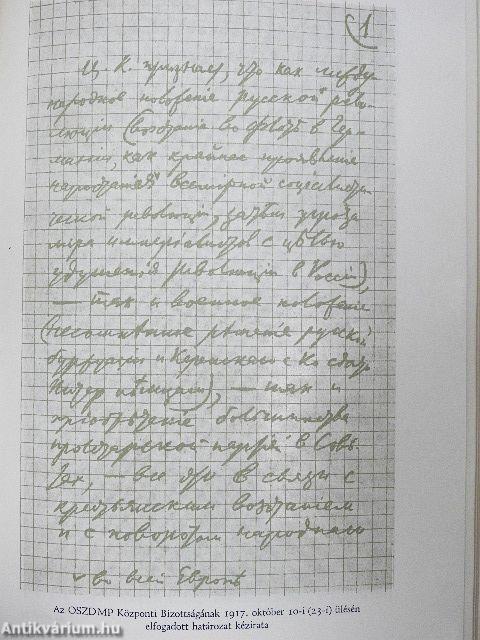 1
Ц. К. признает, что как между-
народное положеніе русской рево-
люціи (возстаніе во флотѣ в Гер-
маніи, как крайнее проявленіе
нарастанія ˅ всемірной соціалисти-
ческой революціи, затѣм угроза
мира имперіалистов с цѣлью
удушенія революціи в Россіи),
— так и военное положеніе
(несомнѣнное рѣшеніе русской
буржуазіи и Керенскаго с Ко сдать
Питер нѣмцам), — так и
пріобрѣтеніе большинства
пролетарской партіей в Совѣ-
тах, — все это в связи с
крестьянским возстаніем
и с поворотом народнаго
˅ во всей Европѣ
Az OSZDMP Központi Bizottságának 1917. október 10-i (23-i) ülésén
elfogadott határozat kézirata
Antikvárium.hu